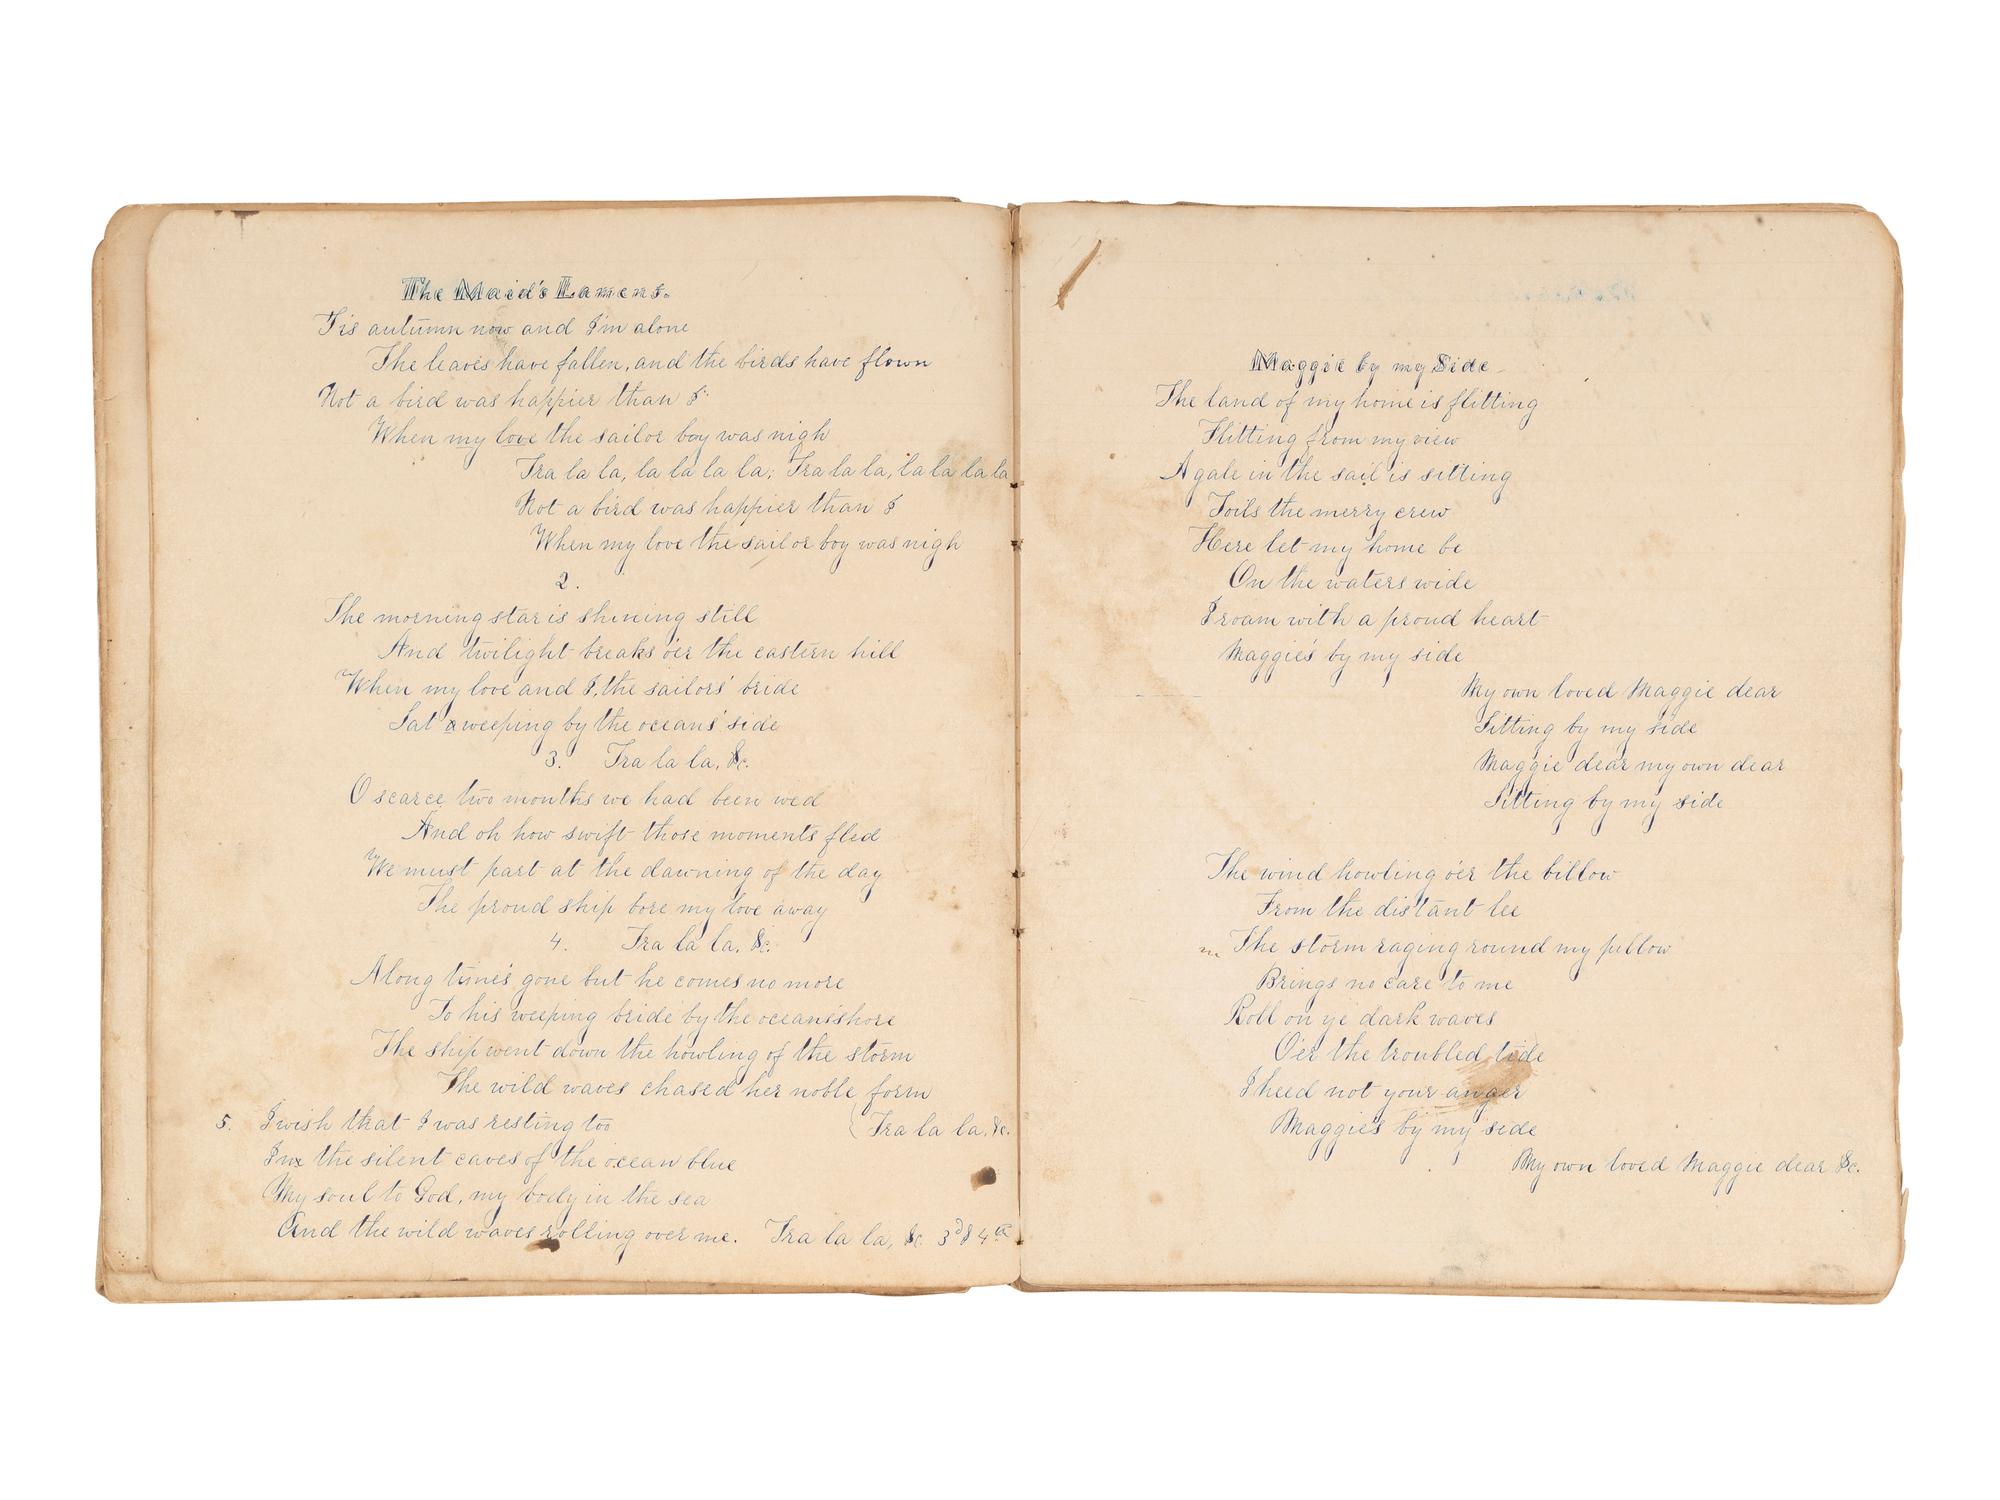 The Maid's Lament.
'Tis autumn now and I'm alone
The leaves have fallen, and the birds have flown
Not a bird was happier than I
When my love the sailor boy was nigh
Tra la la, la la la la; Tra la la, la la la la
Not a bird was happier than I
When my love the sailor boy was nigh
2.
The morning star is shining still
And twilight breaks o'er the eastern hill
When my love and I, the sailors' bride
Sat a weeping by the oceans' side
3. Tra la la, &c.
O scarce two months we had been wed
And oh how swift those moments fled
We must part at the dawning of the day
The proud ship bore my love away
4. Tra la la, &c.
A long time's gone but he comes no more
To his weeping bride by the ocean's shore
The ship went down the howling of the storm
The wild waves chased her noble form
5. I wish that I was resting too { Tra la la, &c.
In the silent caves of the ocean blue
My soul to God, my body in the sea
And the wild waves rolling over me. Tra la la, &c 3d & 4th
Maggie by my Side
The land of my home is flitting
Flitting from my view
A gale in the sail is sitting
Toils the merry crew
Here let my home be
On the waters wide
I roam with a proud heart
Maggie's by my side
My own loved Maggie dear
Sitting by my side
Maggie dear my own dear
Sitting by my side
The wind howling o'er the billow
From the distant lee
The storm raging round my pillow
Brings no care to me
Roll on ye dark waves
O'er the troubled tide
I heed not your anger
Maggie's by my side
My own loved Maggie dear &c.